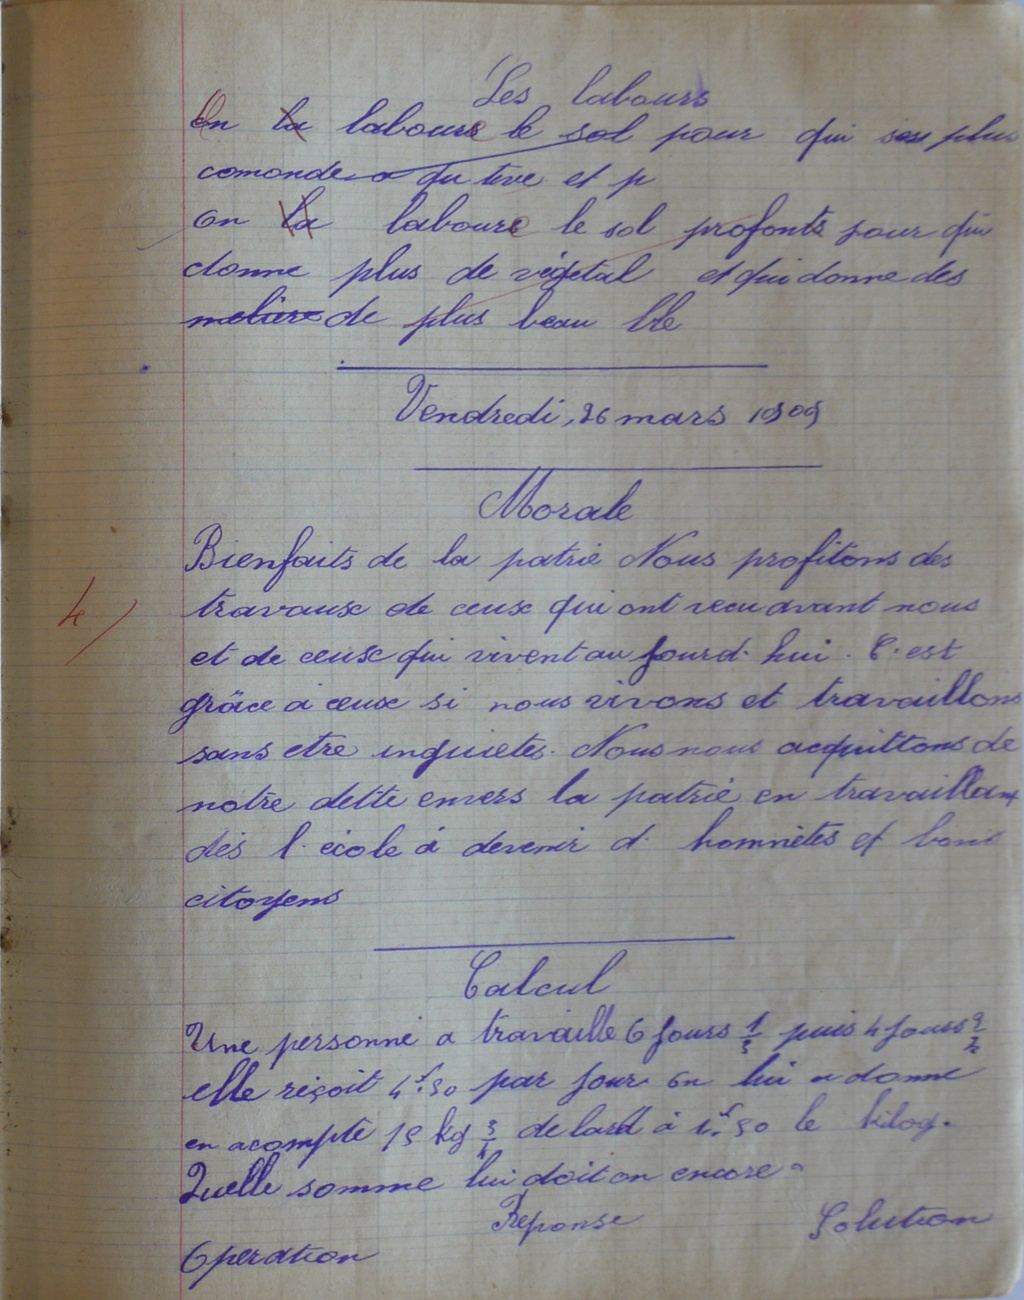 Les labours
On la laboure le sol pour qui sox plus
comande a qu tive et p
on la laboure le sol profonts pour qui
donne plus de végetal et qui donne des
de plus beau ble
Vendredi, 26 mars 1909
Morale
Bienfaits de la patrie Nous profitons des
travaux de ceux qui ont vecu avant nous
et de ceux qui vivent au jourd'hui. C'est
grâce a ceux si nous vivons et travaillons
sans etre inquietes. Nous nous acquittons de
notre dette envers la patrie en travaillant
dès l'école à devenir d'homnètes et bons
citoyens
4)
Calcul
Une personne a travaille 6 jours 1/3 puis 4 jours
elle reçoit 4f.50 par jour on lui a donne
en acompte kg de lard à 1f.50 le kilog.
Quelle somme lui doit on encore
Reponse Solution
Operation